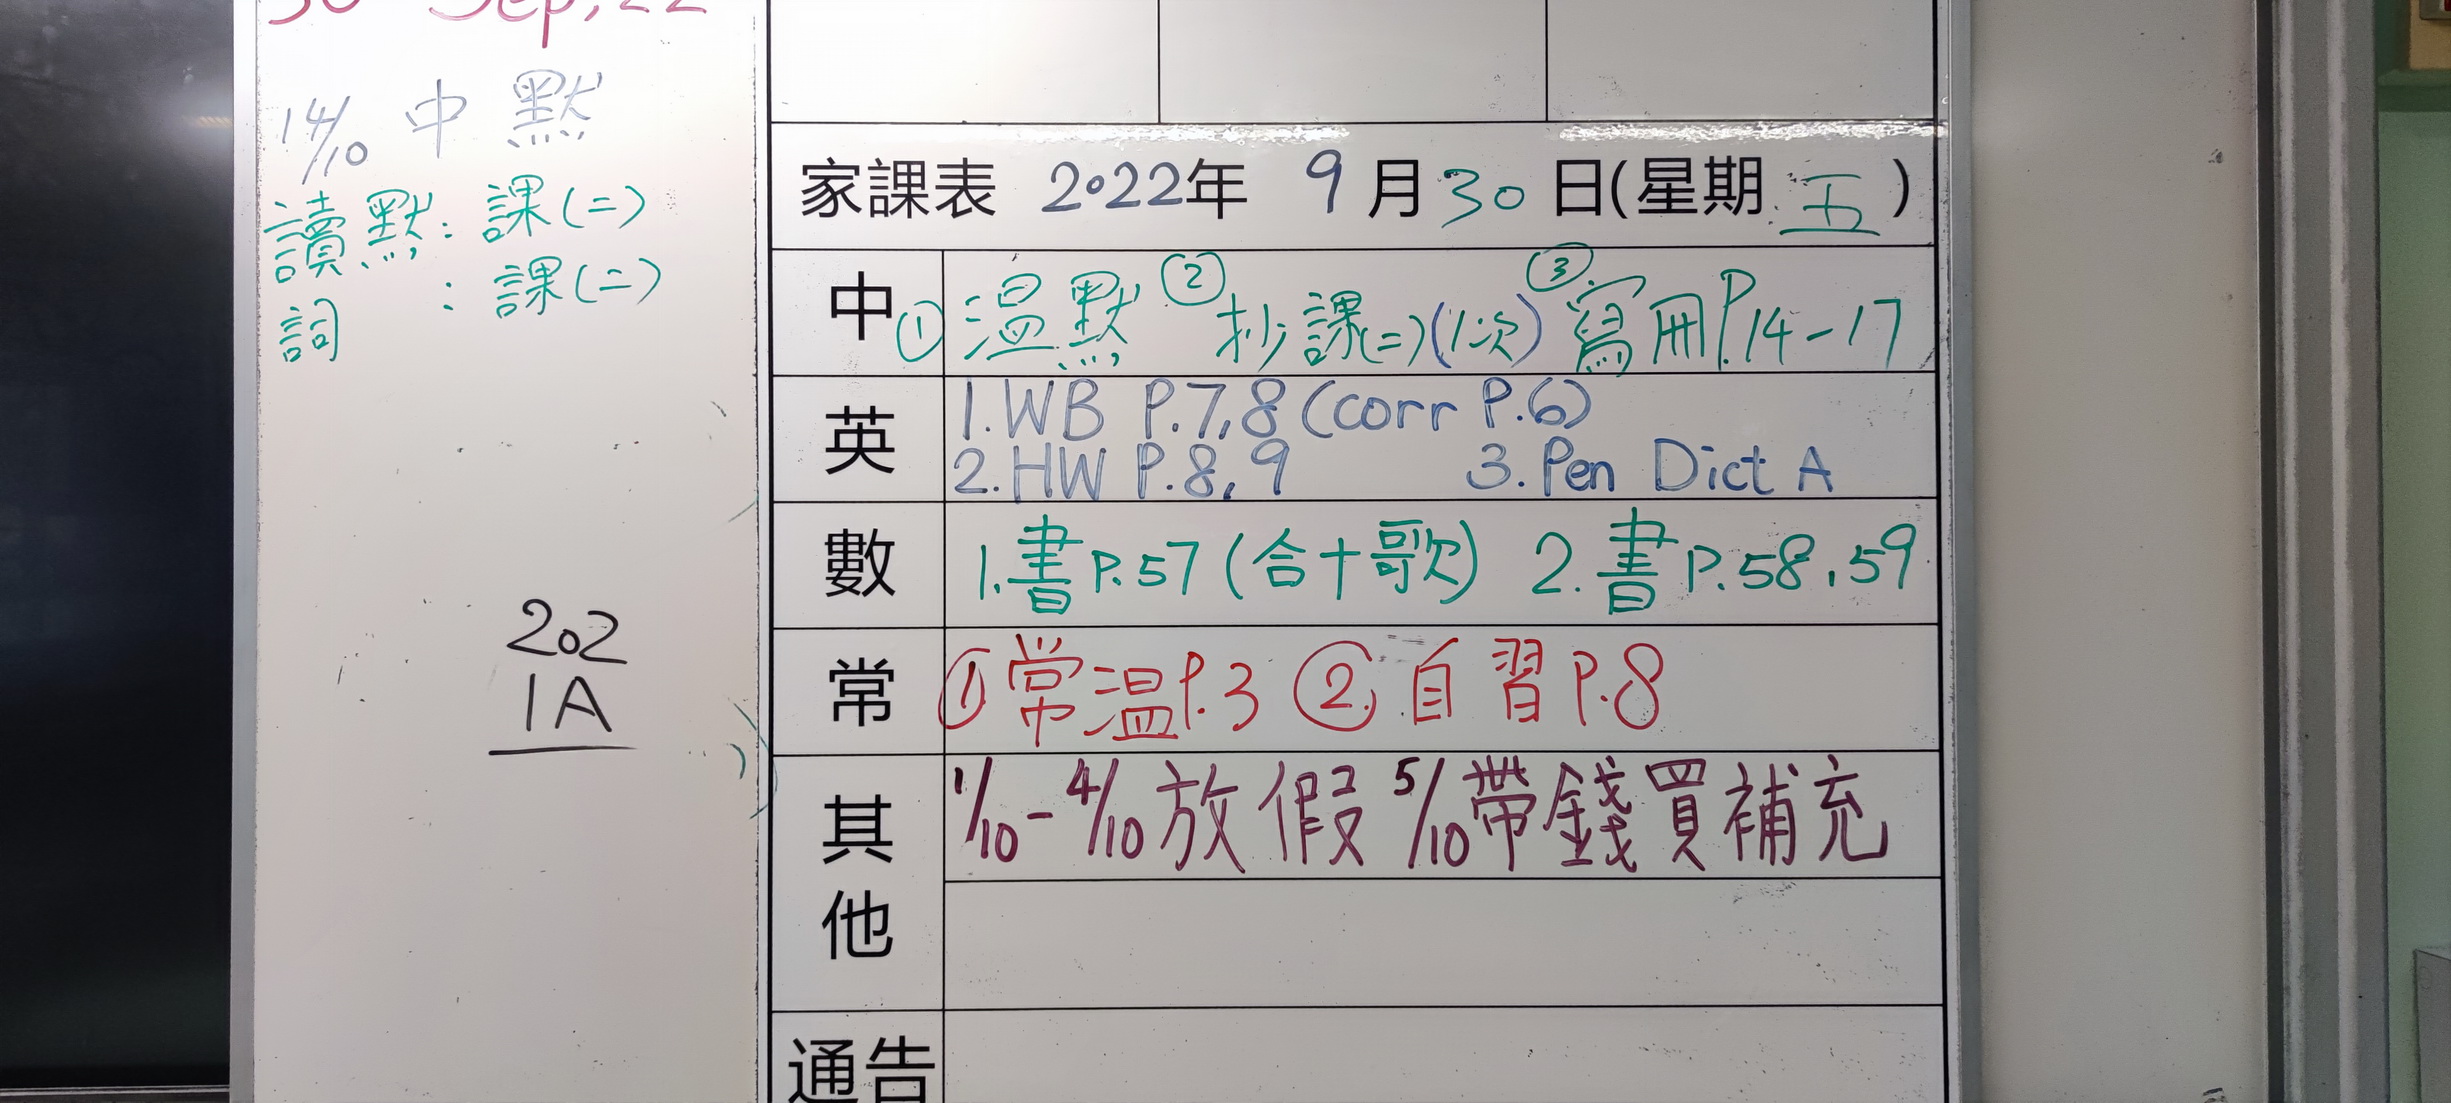 30 Sep, 22
14/10 中默
讀默：課(二)
詞：課(二)
202
1A
家課表 2022年 9月30日(星期五)
中 ①溫默 ②抄課(二)(1次) ③寫冊P.14-17
英 1.WB P.7,8 (corr P.6)
2.HW P.8,9 3.Pen Dict A
數 1.書P.57(合十歌) 2.書P.58,59
常 ①常溫P.3 ②自習P.8
其他 1/10-4/10放假 5/10帶錢買補充
通告